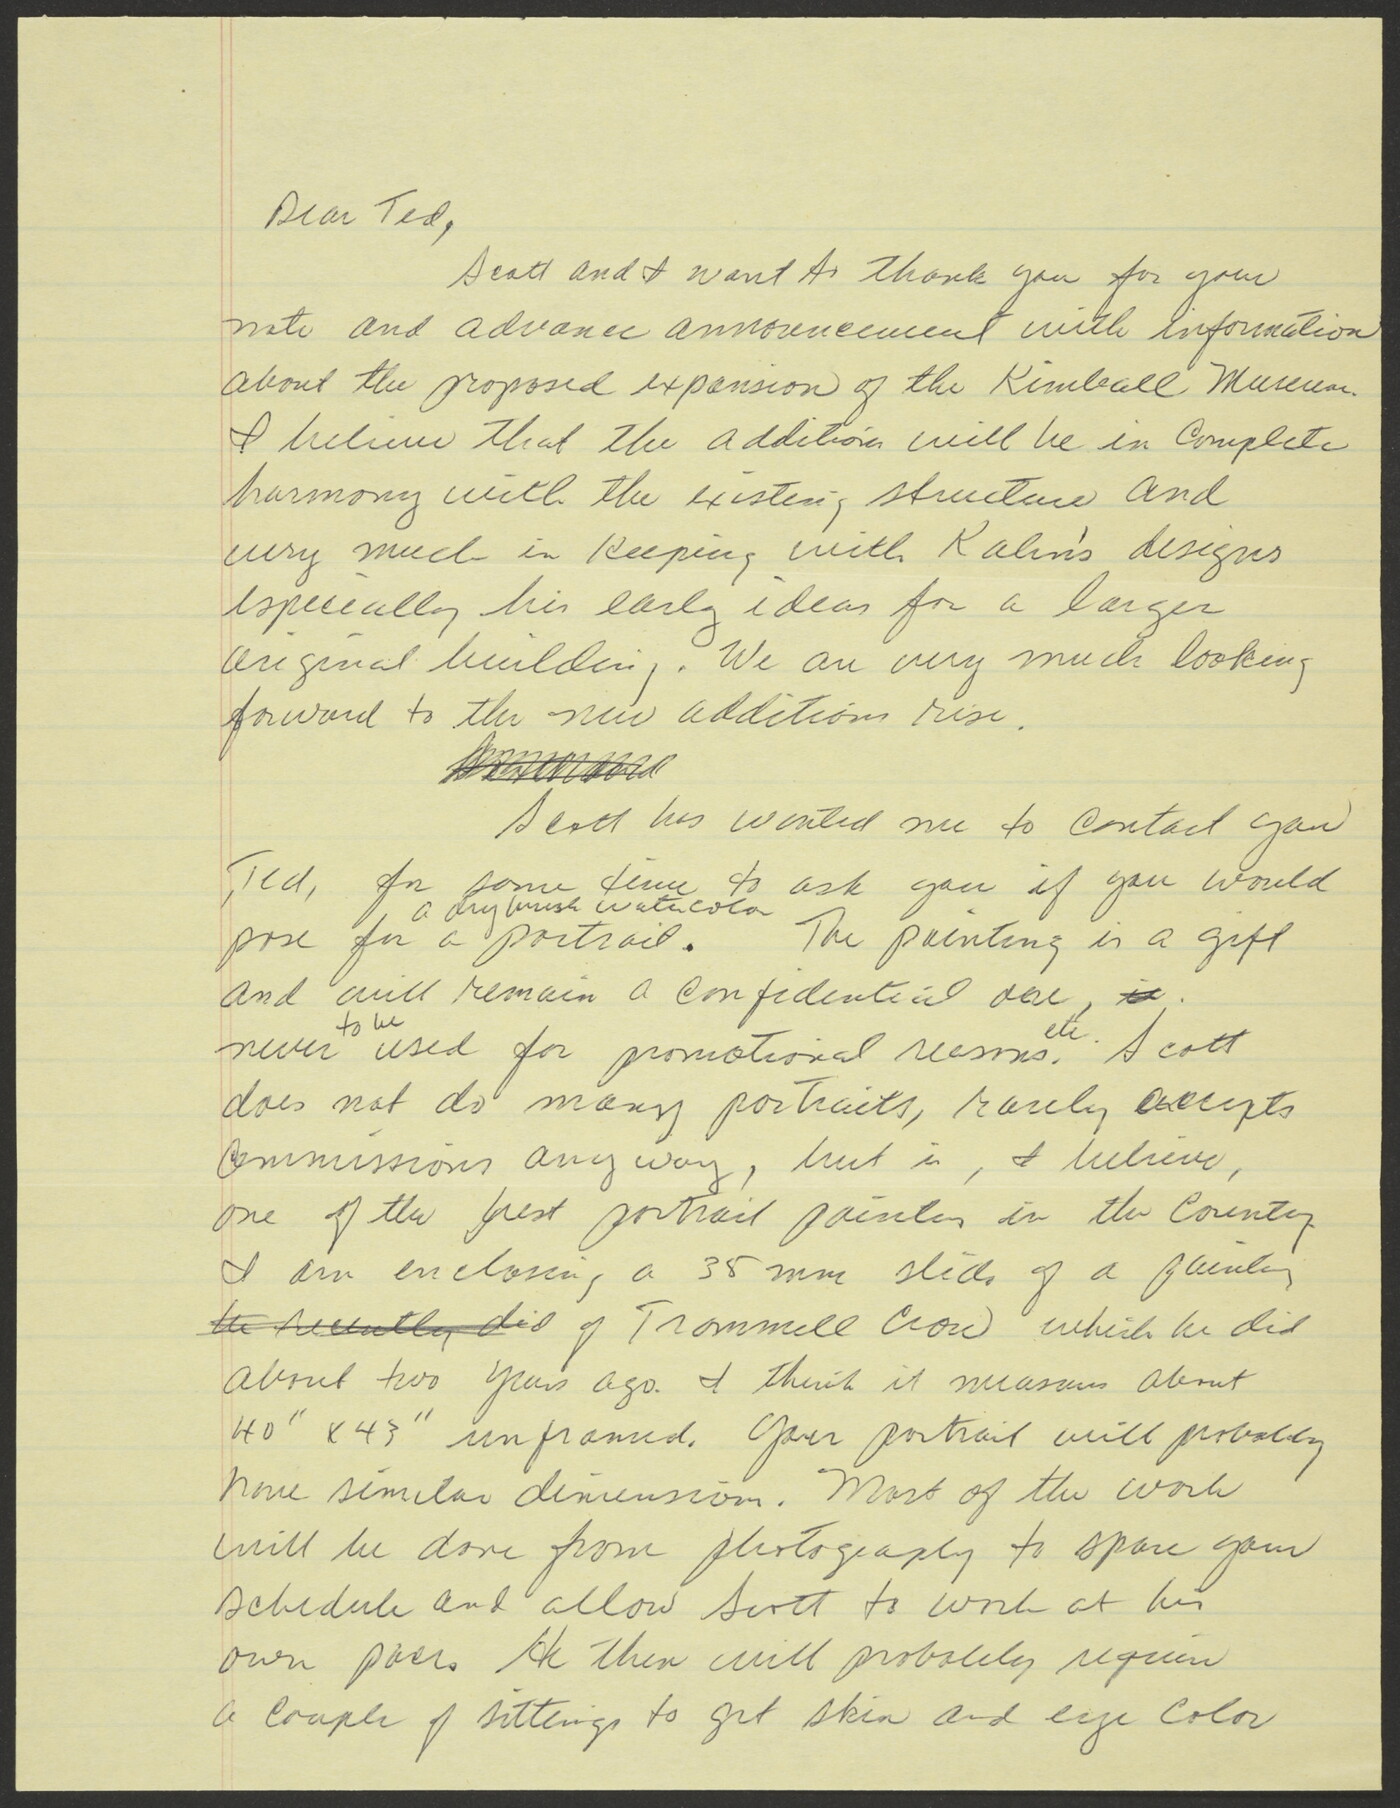 Dear Ted,
Scott and I want to thank you for your
note and advance announcement with information
about the proposed expansion of the Kimball Museum.
I believe that the additions will be in complete
harmony with the existing structure and
very much in keeping with Kahn's designs
especially his early ideas for a larger
original building. We are very much looking
forward to the new additions rise.
Scott has wanted me to contact you
Ted, for some time to ask you if you would
a drybrush watercolor
pose for a portrait. The painting is a gift
and will remain a confidential one, is.
to be etc.
never used for promotional reasons. Scott
does not do many portraits, rarely accepts
commissions anyway, but is, I believe,
one of the best portrait painters in the country
I am enclosing a 35 mm slide of a painting
he recently did of Trammell Crow which he did
about two years ago. I think it measures about
40" x 43" unframed. Your portrait will probably
have similar dimensions. Most of the work
will be done from photography to spare your
schedule and allow Scott to work at his
own pace. He then will probably require
a couple of sittings to get skin and eye color